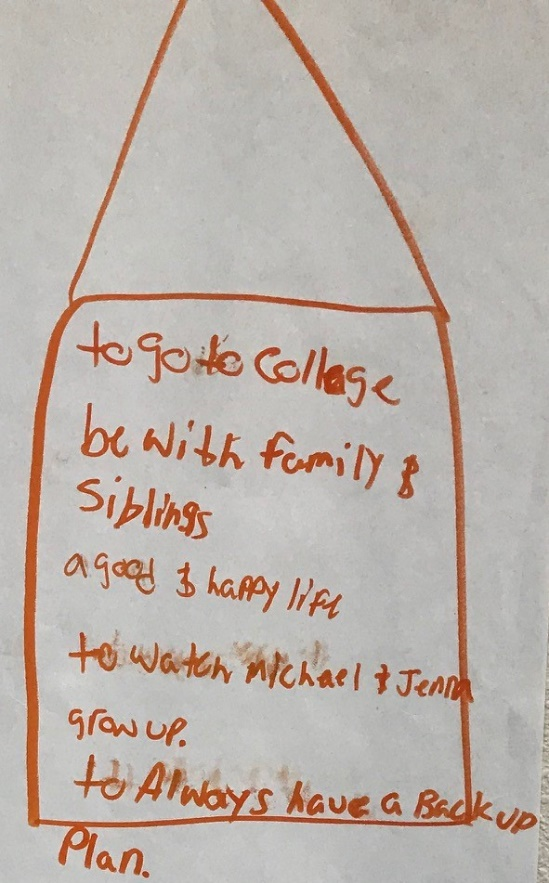 to go to College
be with family &
Siblings
a good & happy life
to watch michael & Jenna
grow up.
to Always have a Back up
Plan.